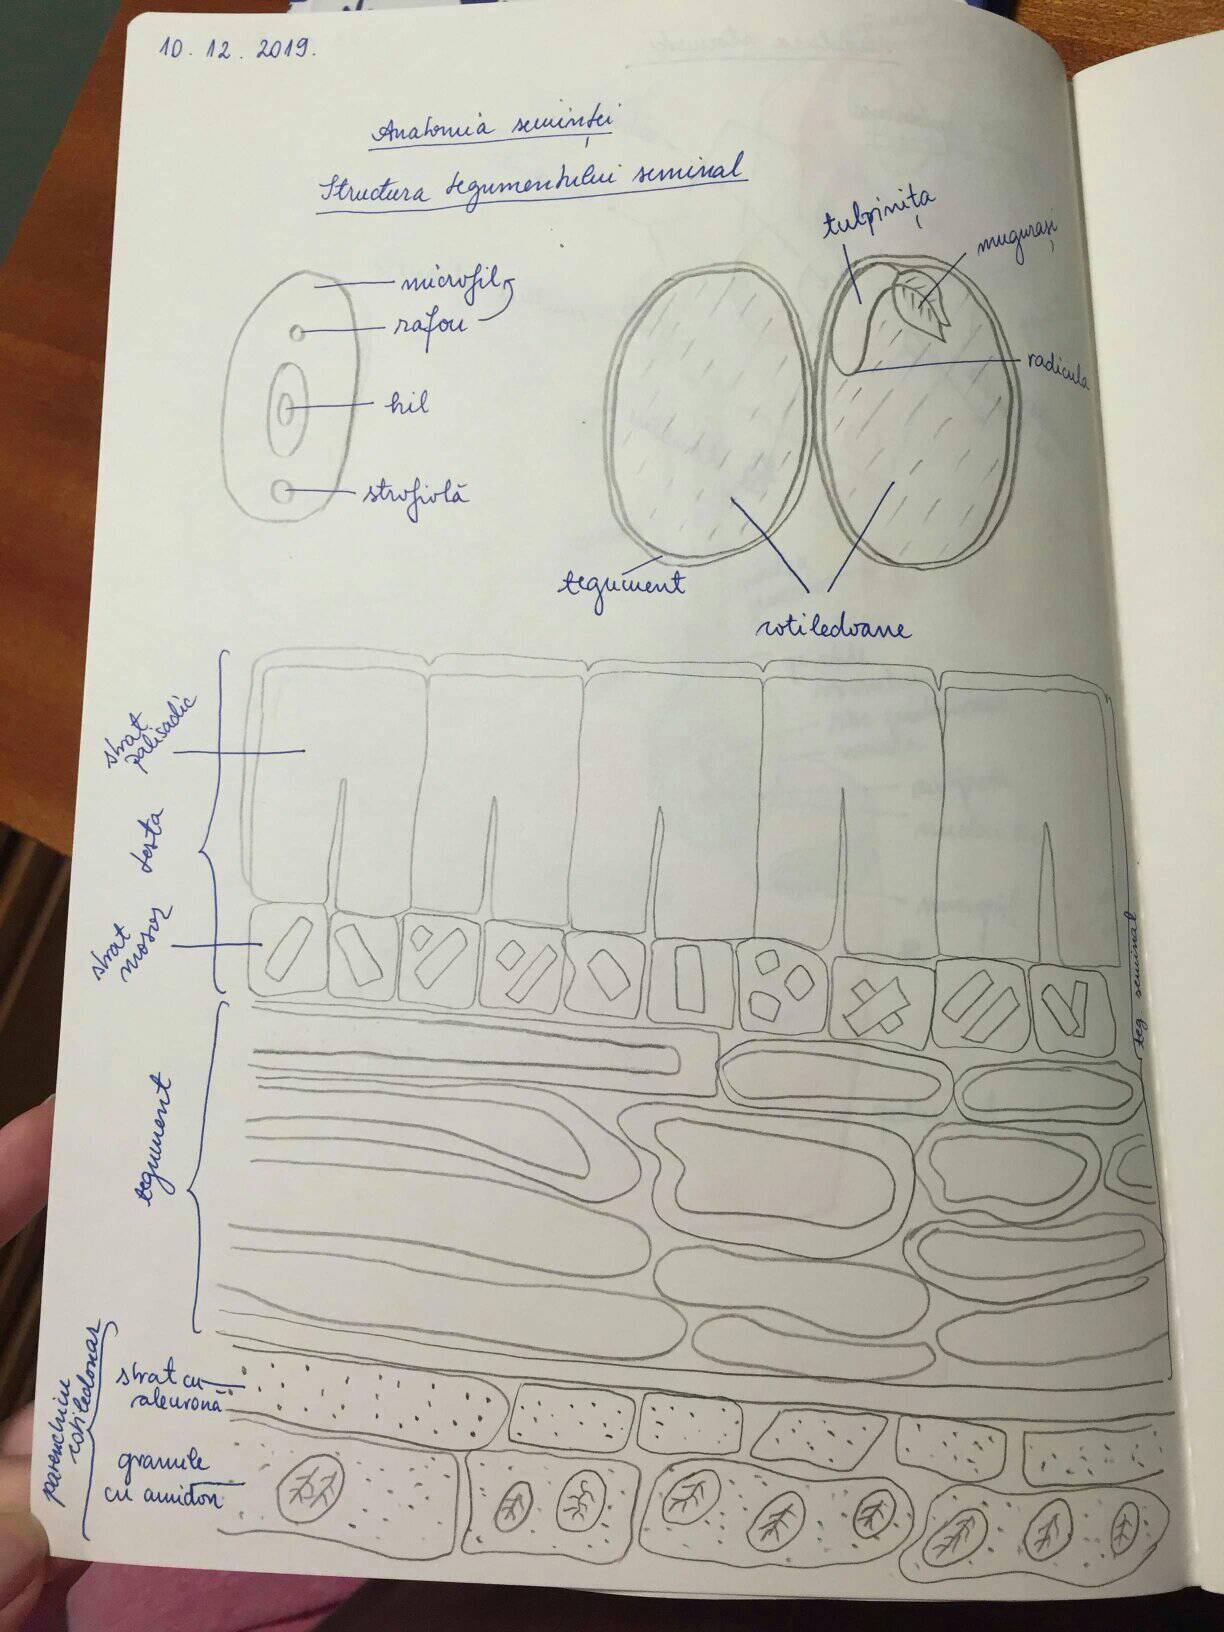 10. 12. 2019.
Anatomia seminței
Structura tegumentului seminal
microfil
rafou
hil
strofiolă
tulpinița
mugurași
radicula
tegument
cotiledoane
strat
palisadic
testa
strat
teg seminal
tegument
parenchim
cotiledonar
strat cu
aleuronă
granule
cu amidon